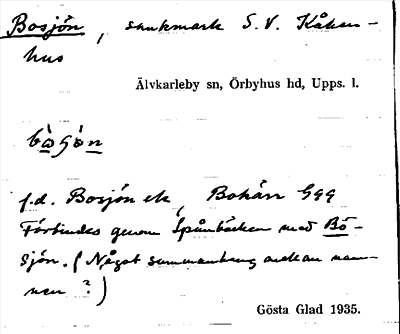 Bosjön, sankmark S.V. Kåken-
hus
Älvkarleby sn, Örbyhus hd, Upps. l.
f.d. Bosjön ek, Bohärr Ggg
Förbindes genom Spånbäcken med Bö-
sjön. (Något sammanhang mellan nam-
nen ?)
Gösta Glad 1935.